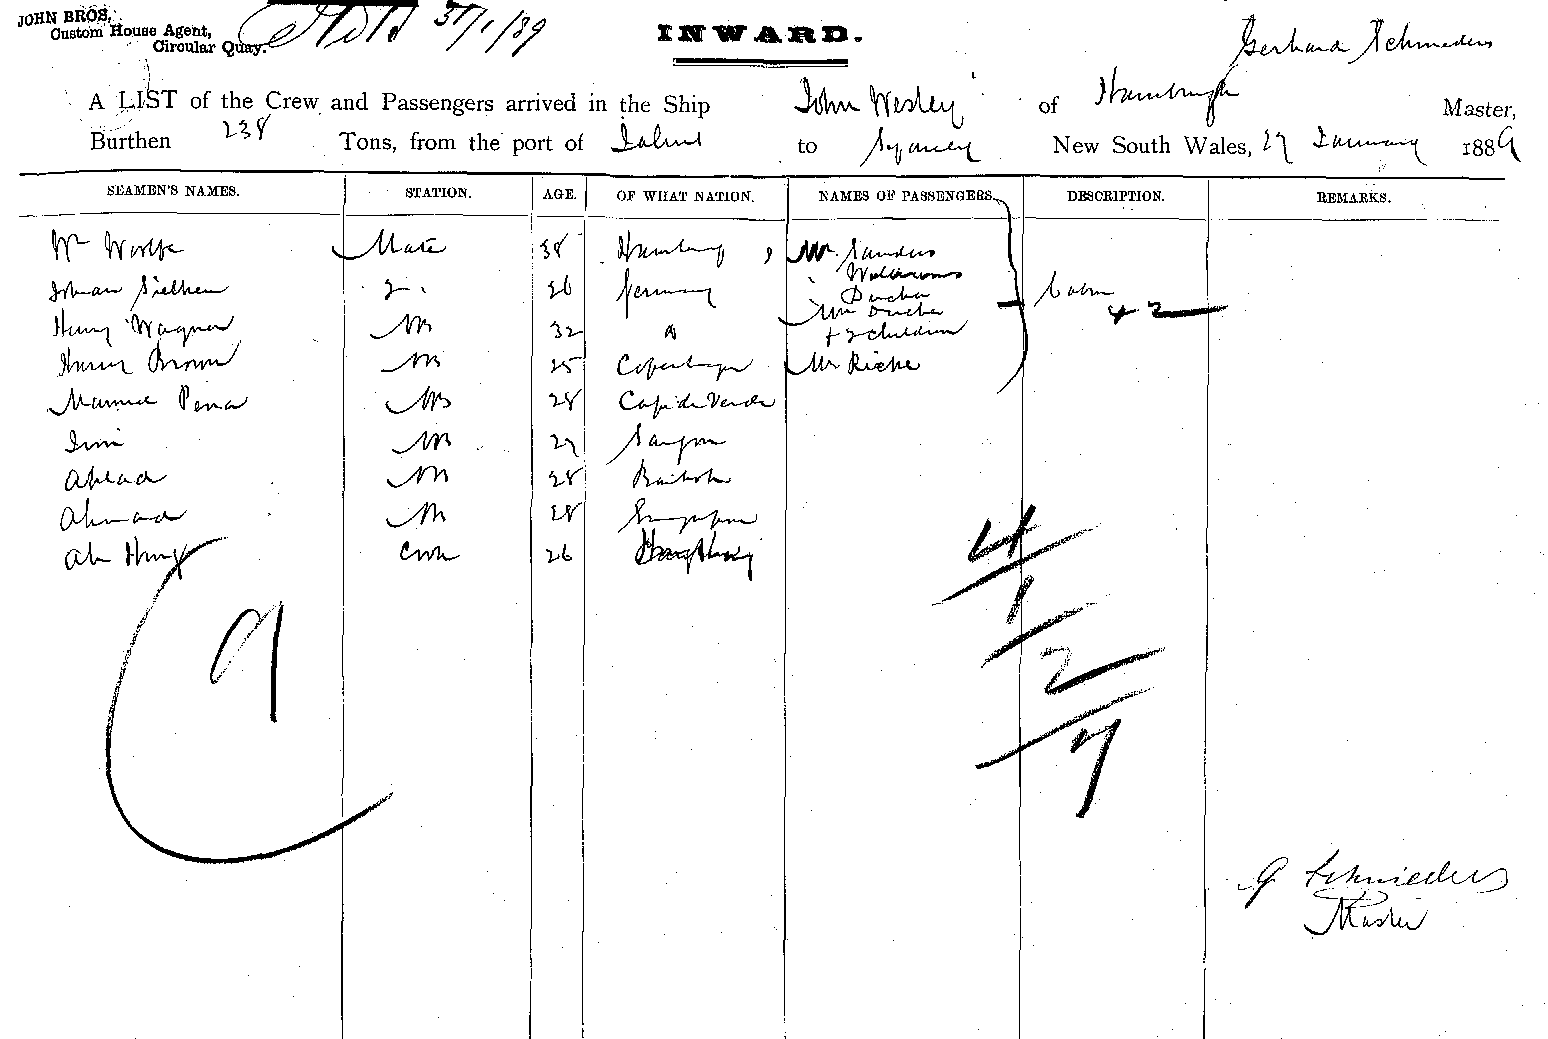 JOHN BROS,
Custom House Agent,
Circular Quay.
31/1/89
INWARD.
Gerhard Schmieders
A LIST of the Crew and Passengers arrived in the Ship John Wesley of Hamburgh Master,
Burthen 238 Tons, from the port of Jaluit to Sydney New South Wales, 27 January 1889
SEAMEN'S NAMES. STATION. AGE. OF WHAT NATION. NAMES OF PASSENGERS. DESCRIPTION. REMARKS.
Wm Mate 38 Hamburg Mr Sanders
Williams
2. 26 Germany
Henry Wagner AB 32 " Mrs
+ 2 children
Cabin
4 2
Brown AB 25 Copenhagen Mr Riche
Pena AB 28 Cap de Verde
AB 27
AB 28
Ahmad AB 28 Singapore
Ah Hung Cook 26
9
4
1
2
7
G Schmieders
Master